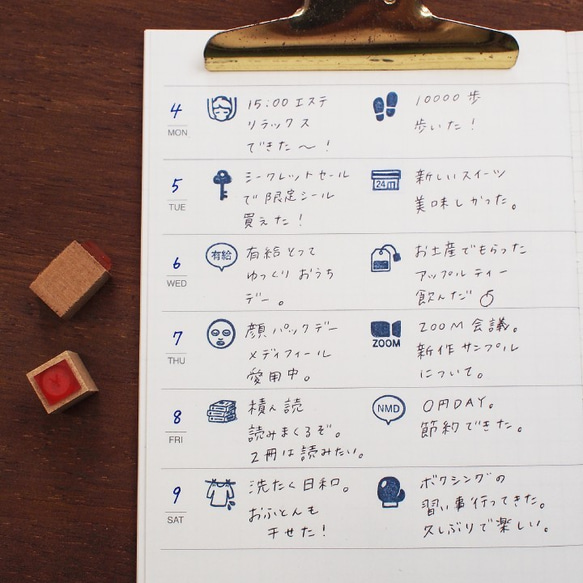 4
MON
15:00 エステ
リラックス
できた〜!
10000 歩
歩いた!
5
TUE
シークレットセール
で 限定シール
買えた!
24h
新しいスイーツ
美味しかった。
6
WED
有給
有給とって
ゆっくり おうち
デー。
お土産でもらった
アップルティー
飲んだ
7
THU
顔 パックデー
メディフィール
愛用中。
ZOOM
ZOOM 会議。
新作サンプル
について。
8
FRI
積ん読
読みまくるぞ。
2冊は読みたい。
NMD
0円DAY。
節約できた。
9
SAT
洗たく日和。
おふとんも
干せた!
ボクシングの
習い事行ってきた。
久しぶりで楽しい。